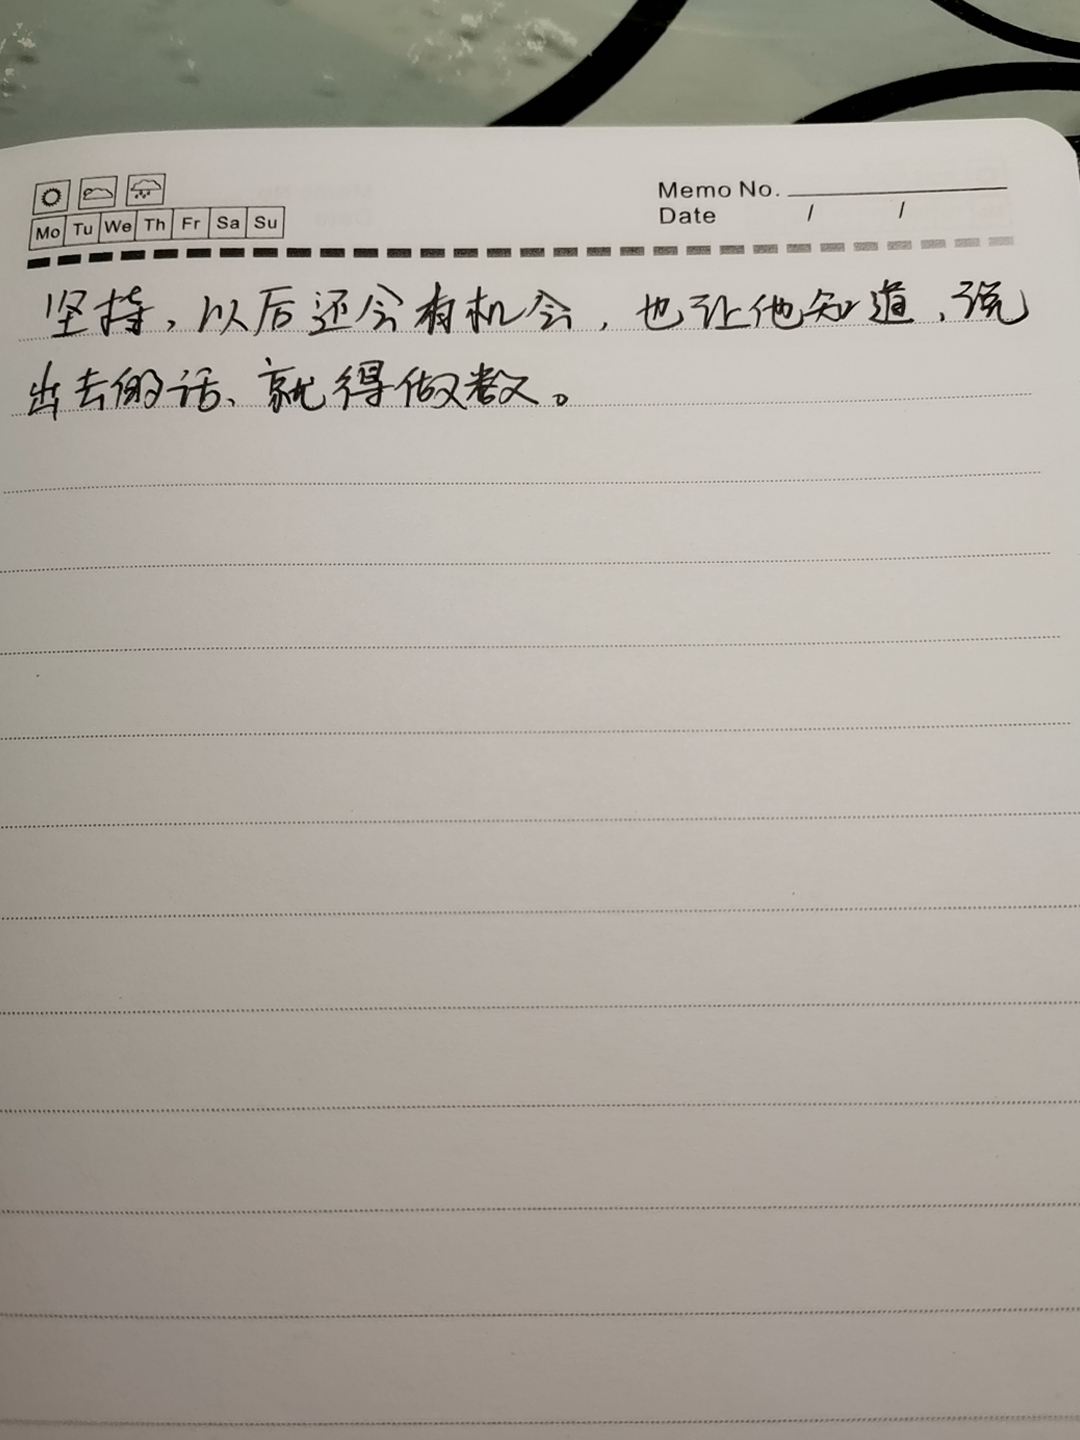 Memo No.
Mo Tu We Th Fr Sa Su
Date / /
坚持，以后还会有机会，也让他知道，说
出去的话、就得做数。